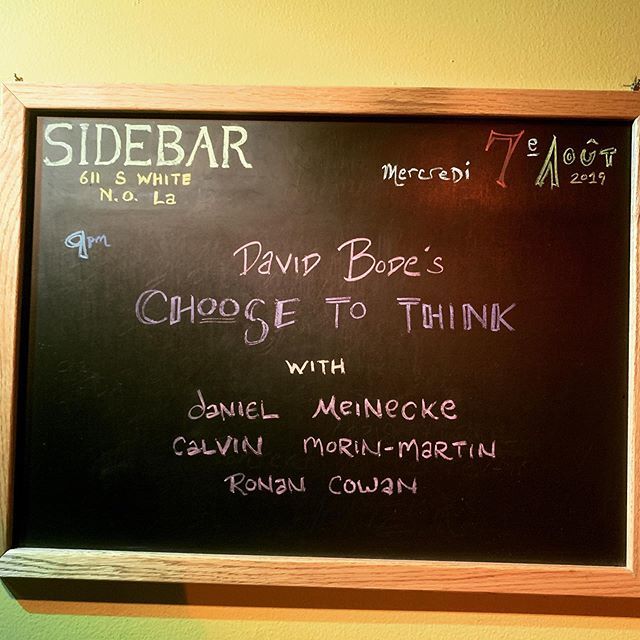 SIDEBAR
611 S WHITE
N.O. La
Mercredi 7e Août
2019
9pm
David Bode's
CHOOSE TO THINK
WITH
Daniel Meinecke
Calvin Morin-Martin
Ronan Cowan